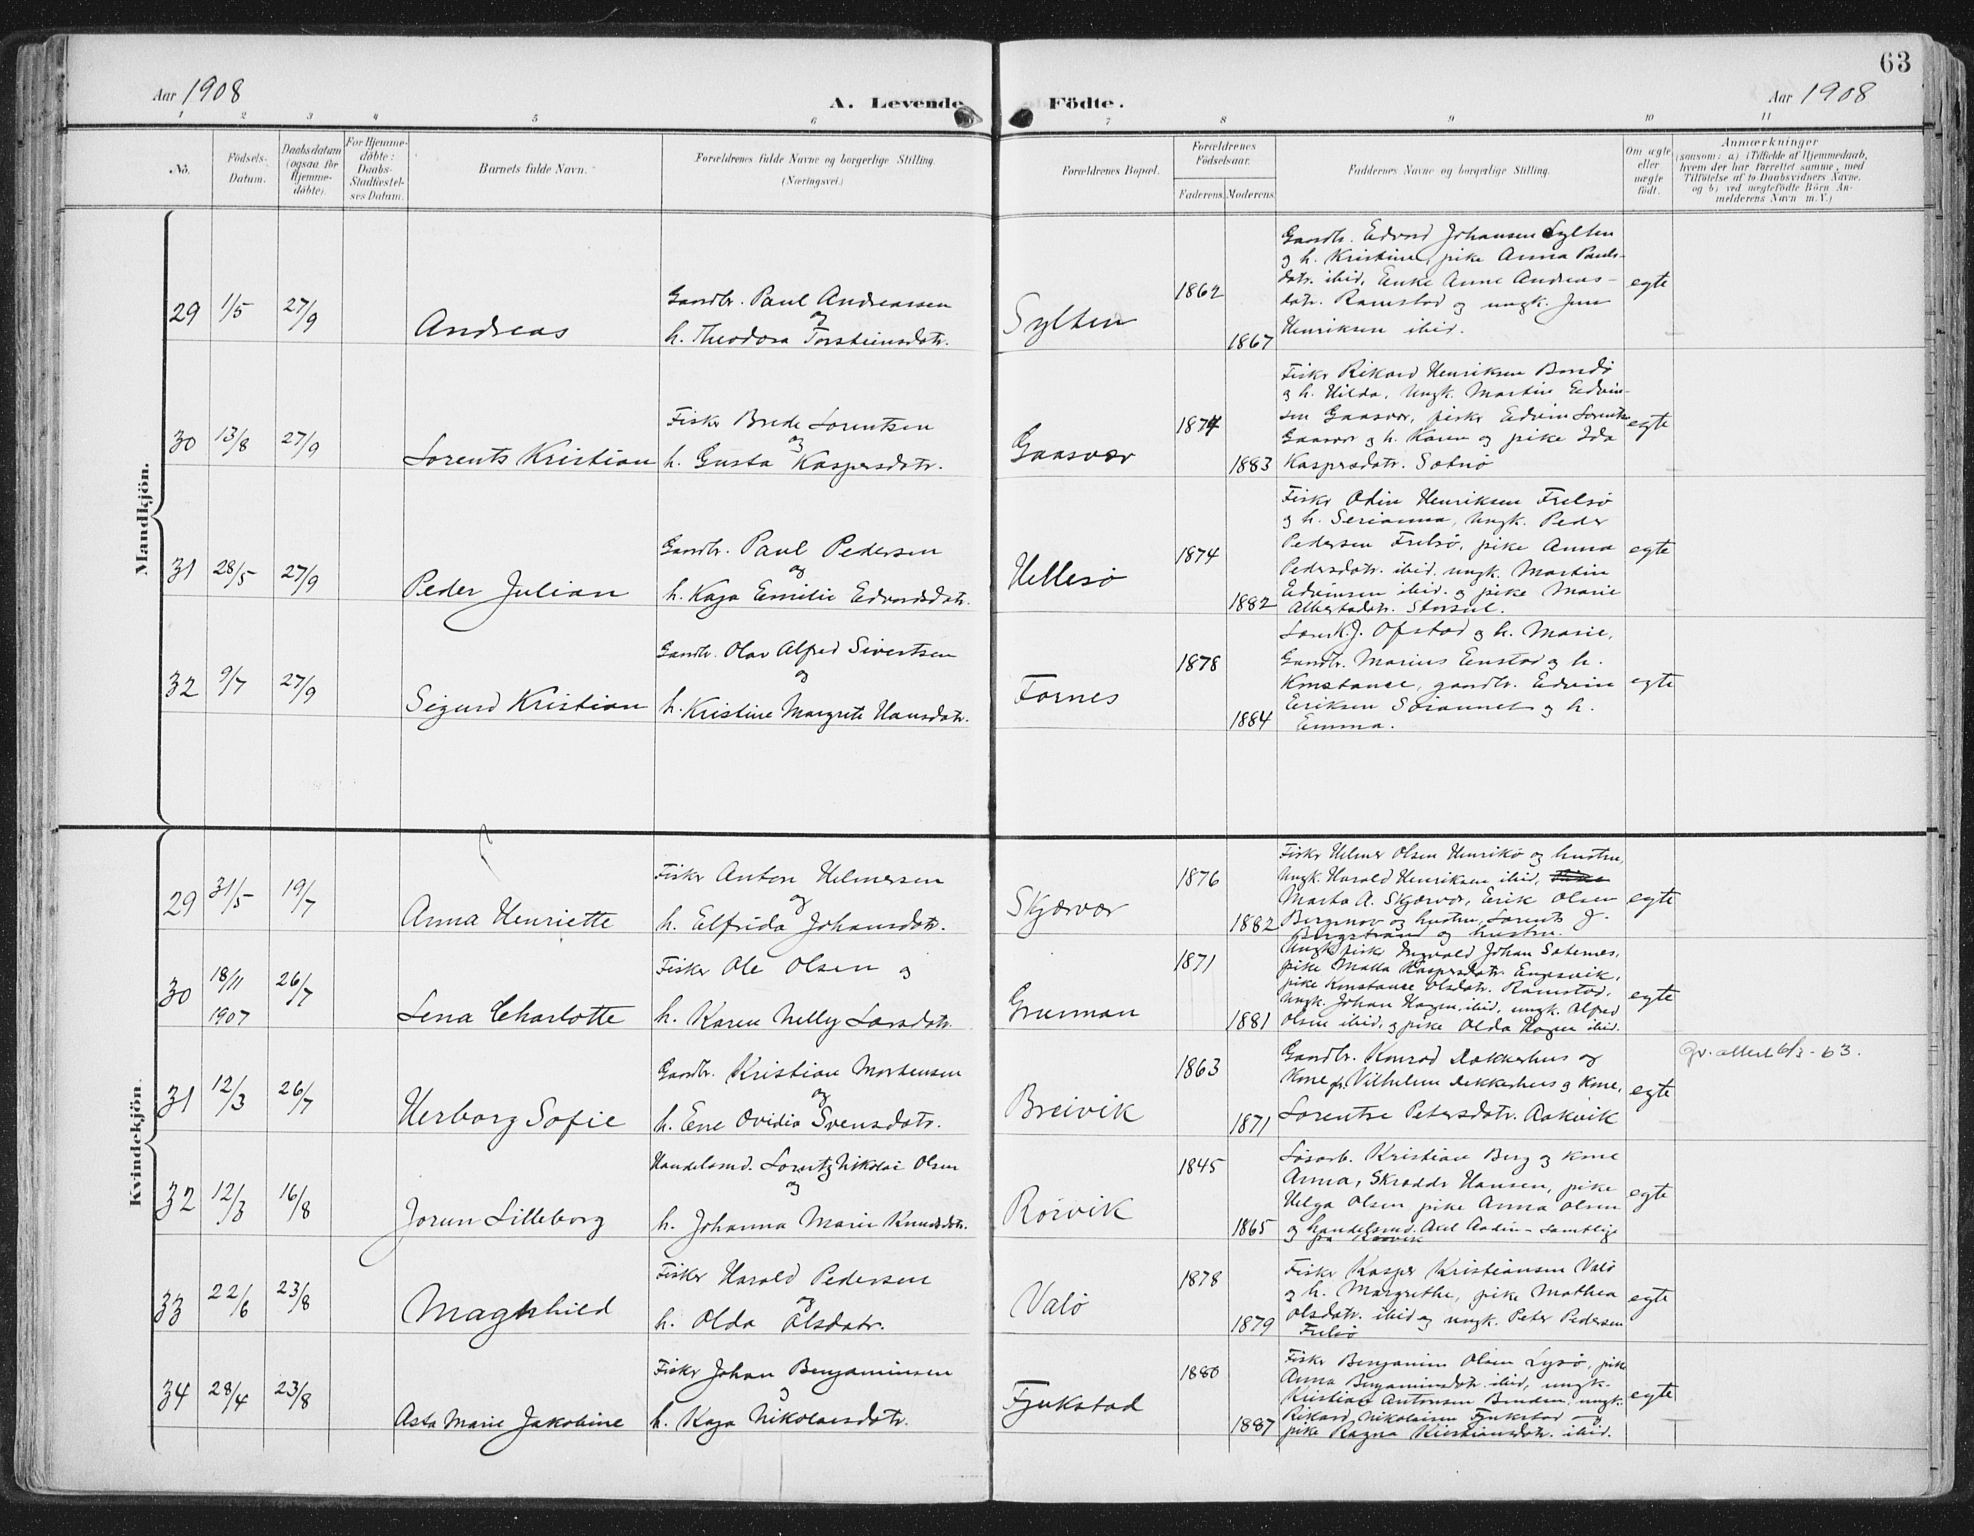 63
Aar 1908
A. Levende Födte.
Aar 1908
1 2 3 4 5 6 7 8 9 10 11
No.
Födsels-
Datum.
Daabsdatum
(ogsaa for
Hjemme-
döbte).
For Hjemme-
döbte:
Daabs-
Stadfæstel-
ses Datum.
Barnets fulde Navn.
Forældrenes fulde Navne og borgerlige Stilling.
(Næringsvei.)
Forældrenes Bopæl.
Forældrenes
Födselsaar.
Faderens. Moderens.
Faddernes Navne og borgerlige Stilling.
Om ægte
eller
uægte
födt.
Anmærkninger
(saasom: a) i Tilfælde af Hjemmedaab,
hvem der har forrettet samme, med
Tilföielse af to Daabsvidners Navne,
og b) ved uægtefödte Börn An-
melderens Navn m. V.)
Mandkjön.
29 1/5 27/9 Andreas
Gaardbr. Paul Andreassen
og
h. Theodora Torsteinsdatr.
Sylten
1862
1867
Gaardbr. Edvard Johansen Sylten
og h. Kristine, pike Anna Pauls-
datr. ibid, Enke Anne Andreas-
datr. Ramstad og ungk. Jens
Henriksen ibid.
egte
30 13/8 27/9 Lorents Kristian
Fisker Brede Lorentsen
og
h. Gusta Kaspersdatr.
Gaasvær
1874
1883
Fisker Rikard Henriksen Bondø
og h. Hilda, ungk. Martin Edvin-
sen Gaasvær, fisker Edvin Lorents.
Gaasvær og h. Karen og pike Ida
Kaspersdatr. Sætnø
egte
31 28/5 27/9 Peder Julian
Gaardbr. Paul Pedersen
og
h. Kaja Emilie Edvardsdatr.
Hellesø
1874
1882
Fisker Odin Henriksen Frelsø
og h. Serianna, ungk. Peder
Pedersen Frelsø, pike Anna
Pedersdatr. ibid. ungk. Martin
Edvinsen ibid. og pike Marie
Albertsdatr. Storsul.
egte
32 9/7 27/9 Sigurd Kristian
Gaardbr. Olav Alfred Sivertsen
og
h. Kristine Margrete Hansdatr.
Fornes
1878
1884
J. Ofstad og h. Marie,
Gaardbr. Marius Enstad og h.
Konstanse, gaardbr. Edvin
Eriksen Søvannet og h.
Emma.
egte
Kvindekjön.
29 31/5 19/7 Anna Henriette
Fisker Anton Helmersen
og
h. Elfrida Johansdatr.
Skjærvær
1876
1882
Fisker Helmer Olsen Henrikø og hustru,
Ungk. Harald Henriksen ibid,
Marta A. Skjærvær, Erik Olsen
og hustru, Lorents J.
Bergstrand og hustru.
egte
30 18/11 1907 26/7 Lena Charlotte
Fisker Ole Olsen og
h. Karen Nelly Larsdatr.
Gruman
1871
1881
Ungk. fisker Ingvald Johan Saternes,
pike Malla Kaspersdatr. Engesvik,
pike Konstanse Olsdatr. Ramstad,
ungk. Johan Hagen ibid, ungk. Alfred
Olsen ibid. og pike Olda Hagen ibid.
egte
31 12/3 26/7 Herborg Sofie
Gaardbr. Kristian Mortensen
og
h. Ene Ovidia Svensdatr.
Breivik
1863
1871
Gaardbr. Konrad Dekkerhus og
Kone, fr. Vilhelm Dekkerhus og Kone,
Lorentse Petersdatr. Aakvik
egte
Gv. attest 6/3-63.
32 12/3 16/8 Jorun Lilleborg
Handelsmd. Lorentz Nikolai Olsen
og
h. Johanna Marie Knudsdatr.
Rørvik
1845
1865
Løsarb. Kristian Berg og kone
Anna, Skrædder Hansen, pike
Helga Olsen pike Anna Olsen
og handelsmd. Axel Aadin – samtlige
fra Rørvik
egte
33 22/6 23/8 Magnhild
Fisker Harald Pedersen
og
h. Olda Olsdatr.
Valø
1878
1879
Fisker Kasper Kristiansen Valø
og h. Margrethe, pike Mathea
Olsdatr. ibid og ungk. Peter Pedersen
Frelsø
egte
34 28/4 23/8 Asta Marie Jakobine
Fisker Johan Benjaminsen
og
h. Kaja Nikolaisdatr.
Fjukstad
1880
1887
Fisker Benjamin Olsen Lysø, pike
Anna Benjaminsdatr. ibid, ungk.
Kristian Antonsen Binden, ungk.
Rikard Nikolaisen Fjukstad og
pike Ragna Kristiansdatr. ibid.
egte